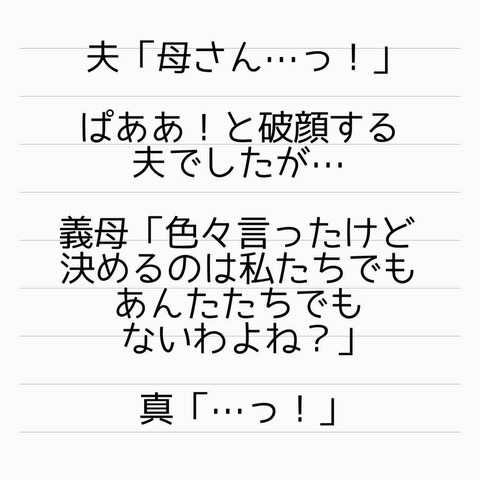 夫「母さん…っ！」
ぱああ！と破顔する
夫でしたが…
義母「色々言ったけど
決めるのは私たちでも
あんたたちでも
ないわよね？」
真「…っ！」